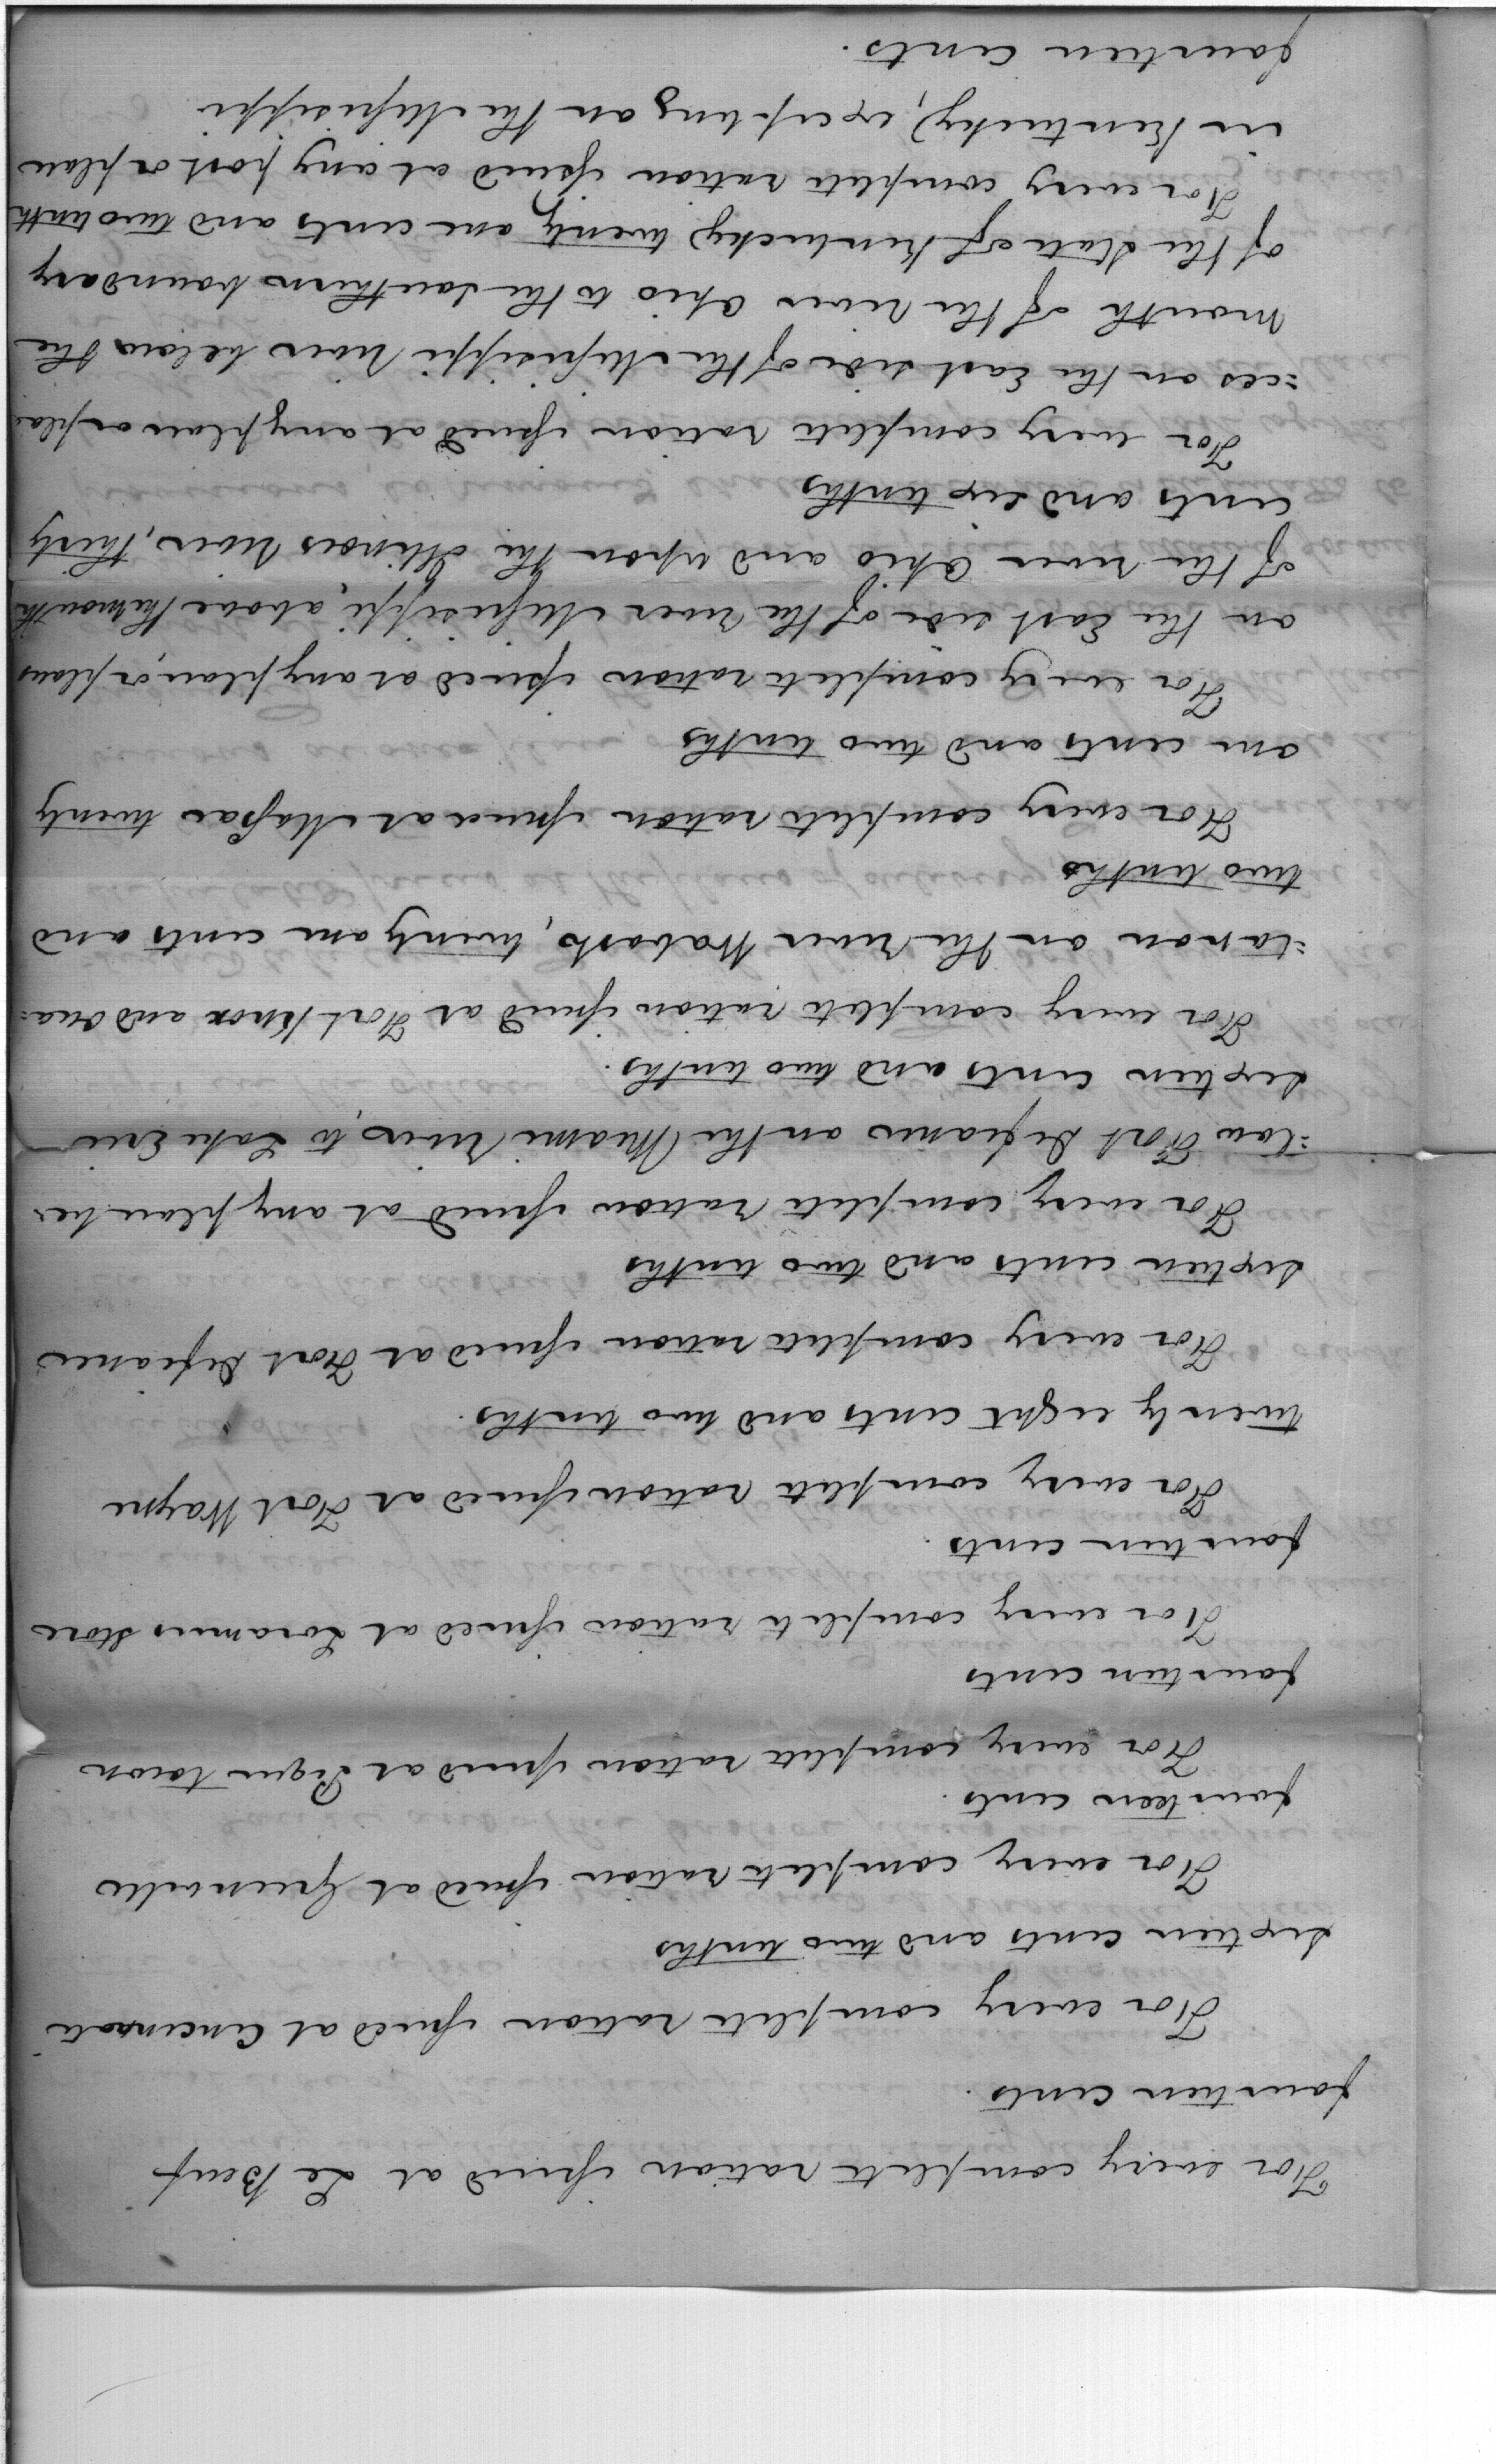 For every complete ration issued at Le Beuf
fourteen cents.
For every complete ration issued at Cincinnati
sixteen cents and two tenths
For every complete ration issued at Greenville
fourteen cents.
For every complete ration issued at Pique town
fourteen cents
For every complete ration issued at Loramies Store
fourteen cents.
For every complete ration issued at Fort Wayne
twenty eight cents and two tenths.
For every complete ration issued at Fort Defiance
sixteen cents and two tenths
For every complete ration issued at any place be-
=low Fort Defiance on the Miami river, to Lake Erie
sixteen cents and two tenths.
For every complete ration issued at Fort Knox and Oua=
=tanon on the river Wabash, twenty one cents and
two tenths
For every complete ration issued at Massac twenty
one cents and two tenths
For every complete ration issued at any place, or places
on the East side of the river Mississippi, above the mouth
of the river Ohio and upon the Illinois river, thirty
cents and six tenths
For every complete ration issued at any place or pla=
=ces on the East side of the Mississippi river below the
mouth of the river Ohio to the Southern boundary
of the State of Kentucky, twenty one cents and two tenth
For every complete ration issued at any post or place
in Kentucky, excepting on the Mississippi
fourteen cents.